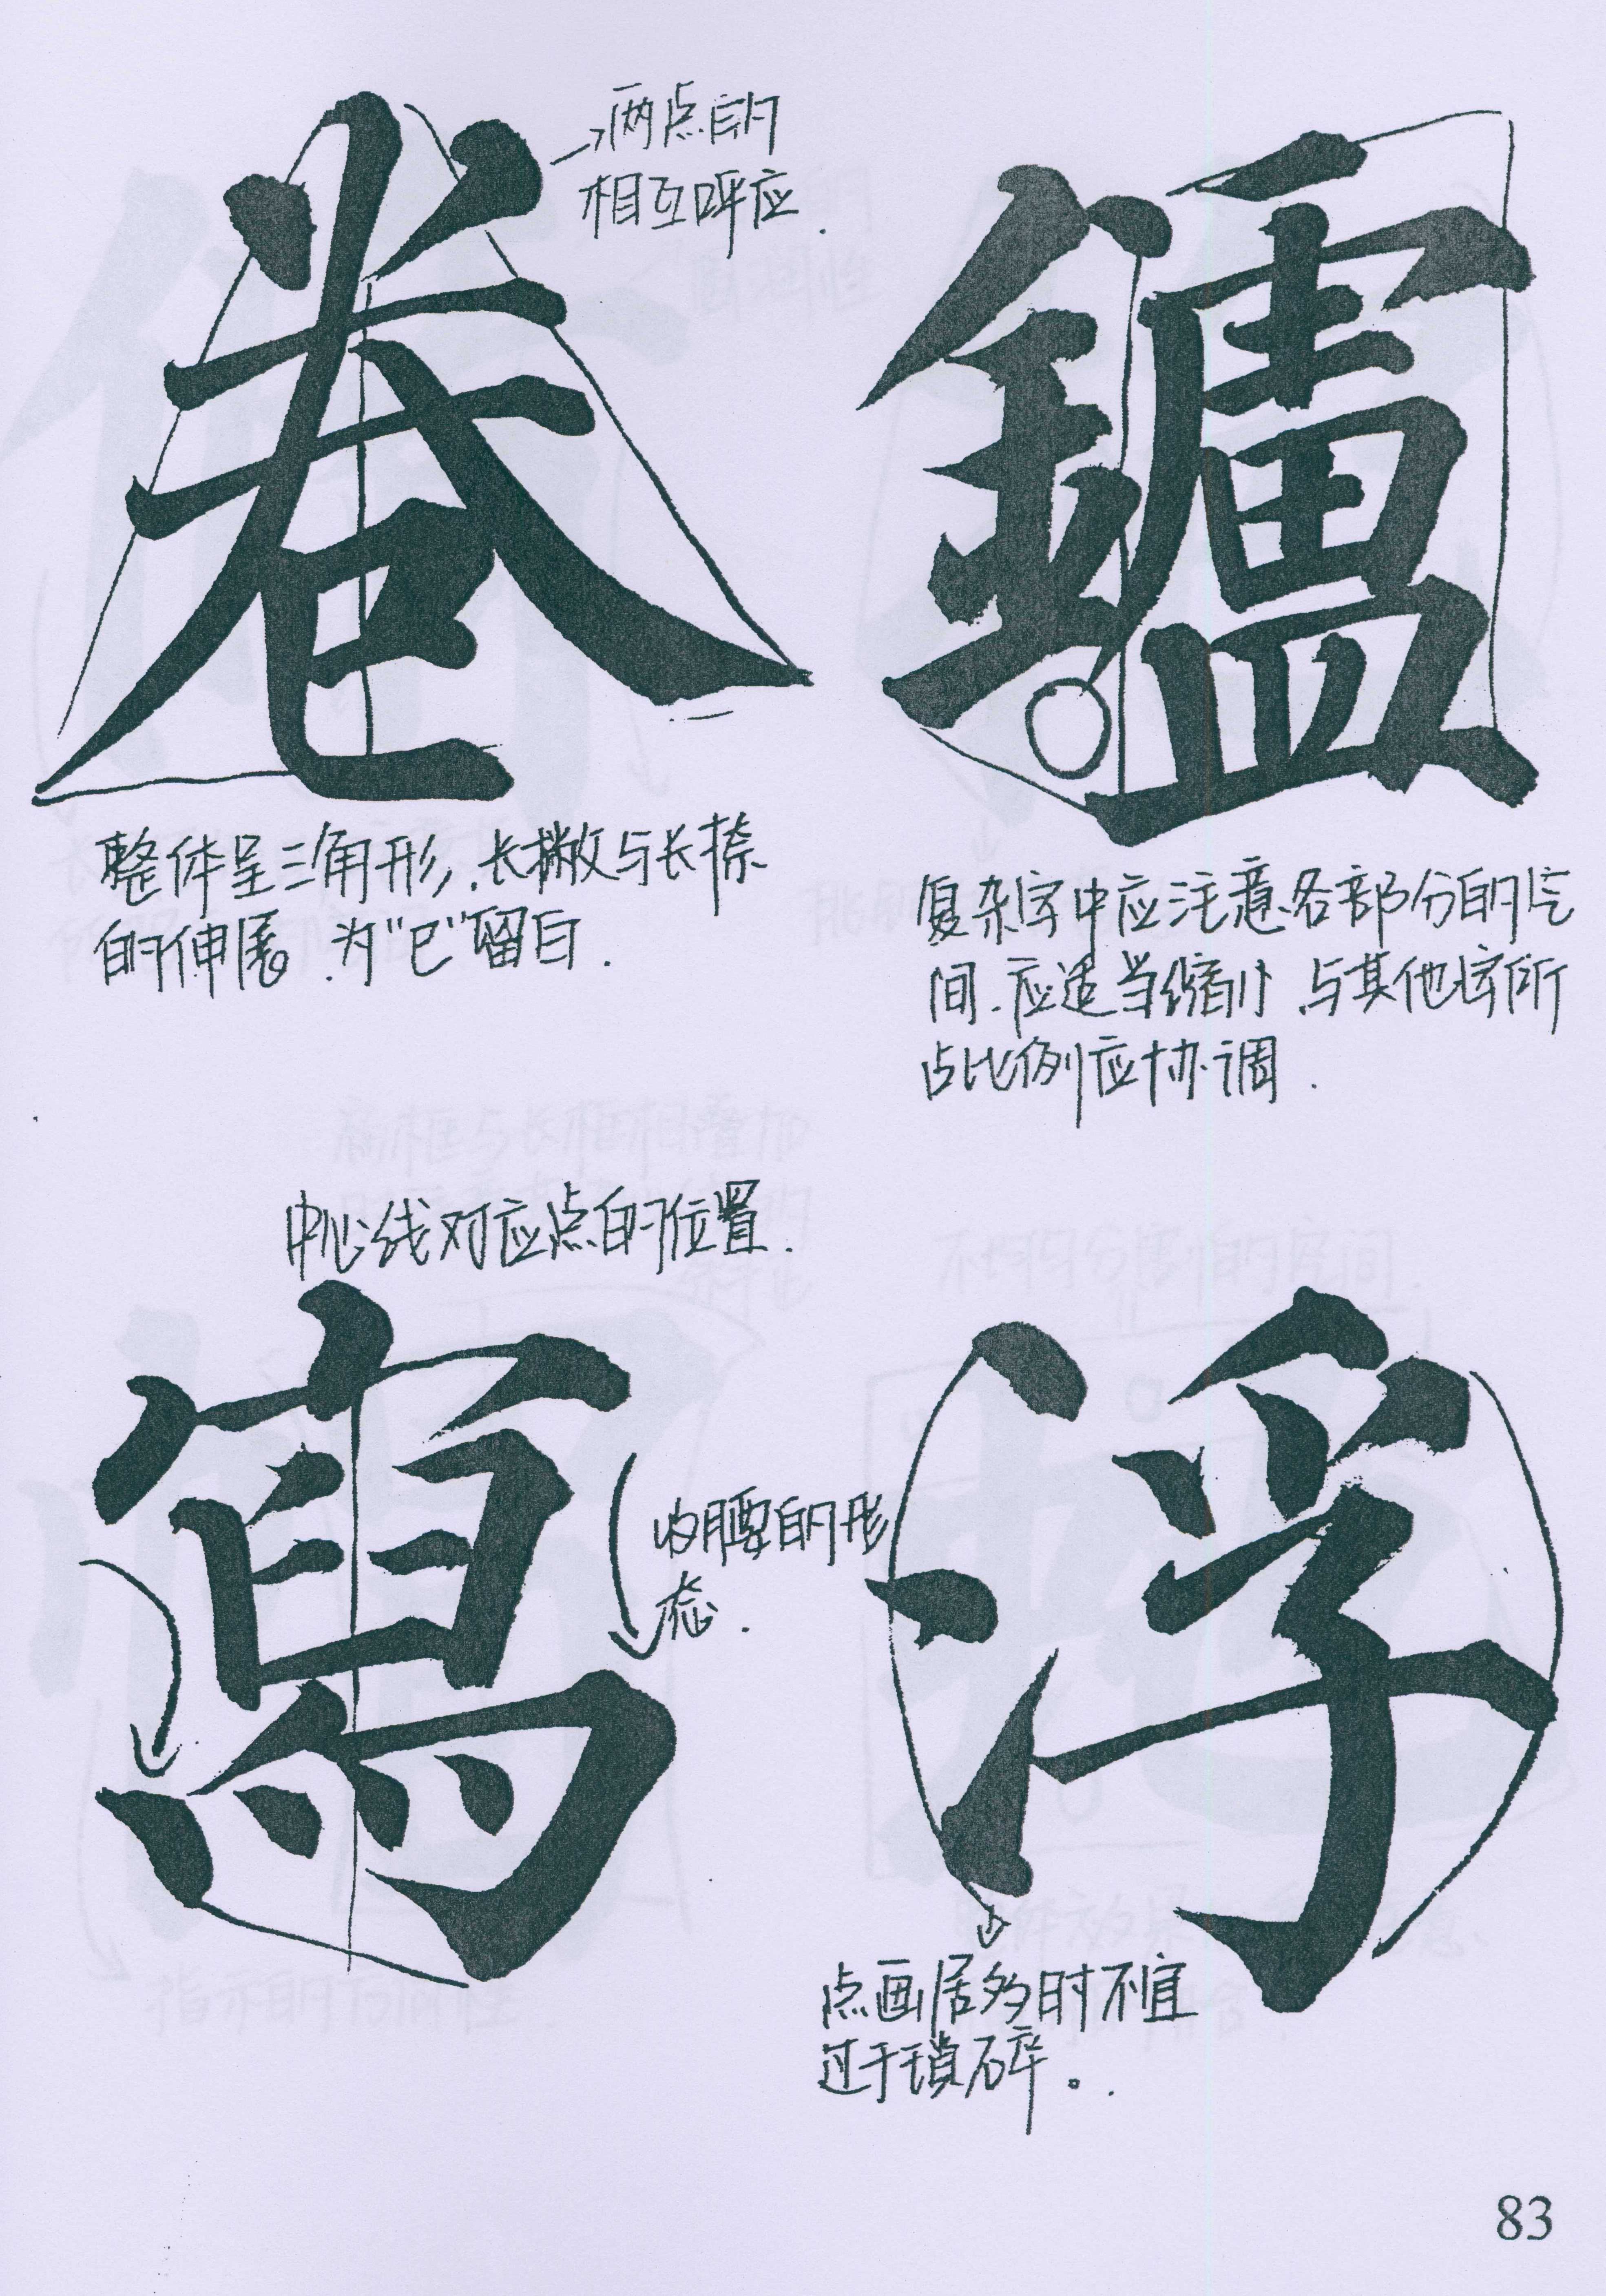 卷
两点的
相互呼应.
整体呈三角形,.长撇与长捺
的伸展.为“巳”留白.
鑪
复杂字中应注意各部分的空
间.应适当缩小.与其他字所
占比例应协调.
中心线对应点的位置.
寫
内腰的形
态.
浮
点画居多时不宜
过于琐碎。.
83